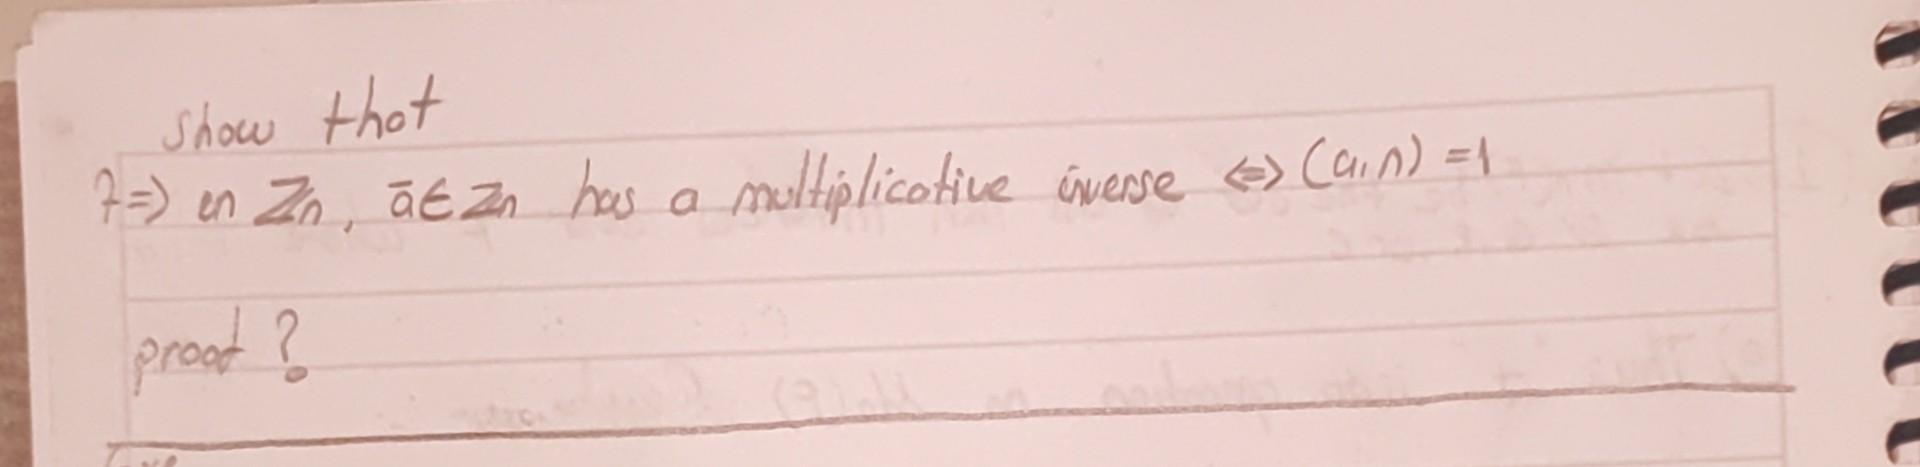 show that
7=> in Zn, ā∈Zn has a multiplicative inverse <=> (a,n) =1
proof ?